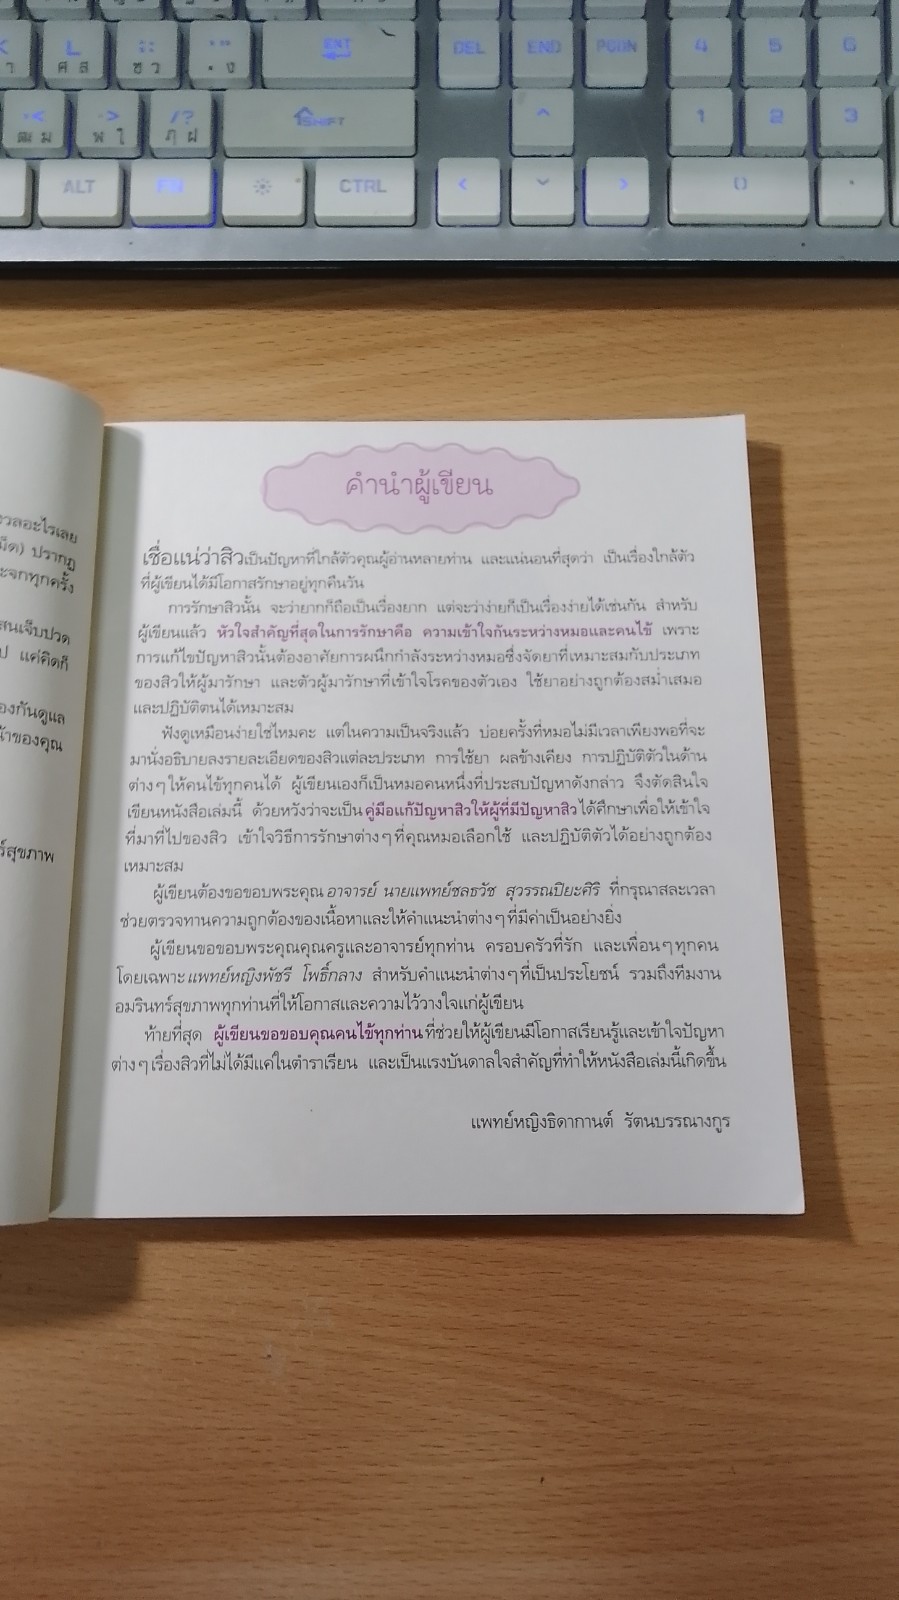 L
ศ ส
ซ ว
. ง
ENT
DEL
END
PGDN
4
5
6
ฒ ม
พ ใ
/?
ฦ ฝ
SHIFT
^
1
2
3
ALT
FN
CTRL
<
>
0
.
วลอะไรเลย
ม็ด) ปรากฏ
ะจกทุกครั้ง
สนเจ็บปวด
ป แค่คิดก็
องกันดูแล
น้าของคุณ
ร์สุขภาพ
คำนำผู้เขียน
เชื่อแน่ว่าสิวเป็นปัญหาที่ใกล้ตัวคุณผู้อ่านหลายท่าน และแน่นอนที่สุดว่า เป็นเรื่องใกล้ตัว
ที่ผู้เขียนได้มีโอกาสรักษาอยู่ทุกคืนวัน
การรักษาสิวนั้น จะว่ายากก็ถือเป็นเรื่องยาก แต่จะว่าง่ายก็เป็นเรื่องง่ายได้เช่นกัน สำหรับ
ผู้เขียนแล้ว หัวใจสำคัญที่สุดในการรักษาคือ ความเข้าใจกันระหว่างหมอและคนไข้ เพราะ
การแก้ไขปัญหาสิวนั้นต้องอาศัยการผนึกกำลังระหว่างหมอซึ่งจัดยาที่เหมาะสมกับประเภท
ของสิวให้ผู้มารักษา และตัวผู้มารักษาที่เข้าใจโรคของตัวเอง ใช้ยาอย่างถูกต้องสม่ำเสมอ
และปฏิบัติตนได้เหมาะสม
ฟังดูเหมือนง่ายใช่ไหมคะ แต่ในความเป็นจริงแล้ว บ่อยครั้งที่หมอไม่มีเวลาเพียงพอที่จะ
มานั่งอธิบายลงรายละเอียดของสิวแต่ละประเภท การใช้ยา ผลข้างเคียง การปฏิบัติตัวในด้าน
ต่างๆ ให้คนไข้ทุกคนได้ ผู้เขียนเองก็เป็นหมอคนหนึ่งที่ประสบปัญหาดังกล่าว จึงตัดสินใจ
เขียนหนังสือเล่มนี้ ด้วยหวังว่าจะเป็นคู่มือแก้ปัญหาสิวให้ผู้ที่มีปัญหาสิวได้ศึกษาเพื่อให้เข้าใจ
ที่มาที่ไปของสิว เข้าใจวิธีการรักษาต่างๆ ที่คุณหมอเลือกใช้ และปฏิบัติตัวได้อย่างถูกต้อง
เหมาะสม
ผู้เขียนต้องขอขอบพระคุณ อาจารย์ นายแพทย์ชลธวัช สุวรรณปิยะศิริ ที่กรุณาสละเวลา
ช่วยตรวจทานความถูกต้องของเนื้อหาและให้คำแนะนำต่างๆ ที่มีค่าเป็นอย่างยิ่ง
ผู้เขียนขอขอบพระคุณคุณครูและอาจารย์ทุกท่าน ครอบครัวที่รัก และเพื่อนๆ ทุกคน
โดยเฉพาะ แพทย์หญิงพัชรี โพธิ์กลาง สำหรับคำแนะนำต่างๆ ที่เป็นประโยชน์ รวมถึงทีมงาน
อมรินทร์สุขภาพทุกท่านที่ให้โอกาสและความไว้วางใจแก่ผู้เขียน
ท้ายที่สุด ผู้เขียนขอขอบคุณคนไข้ทุกท่าน ที่ช่วยให้ผู้เขียนมีโอกาสเรียนรู้และเข้าใจปัญหา
ต่างๆ เรื่องสิวที่ไม่ได้มีแค่ในตำราเรียน และเป็นแรงบันดาลใจสำคัญที่ทำให้หนังสือเล่มนี้เกิดขึ้น
แพทย์หญิงธิดากานต์ รัตนบรรณางกูร